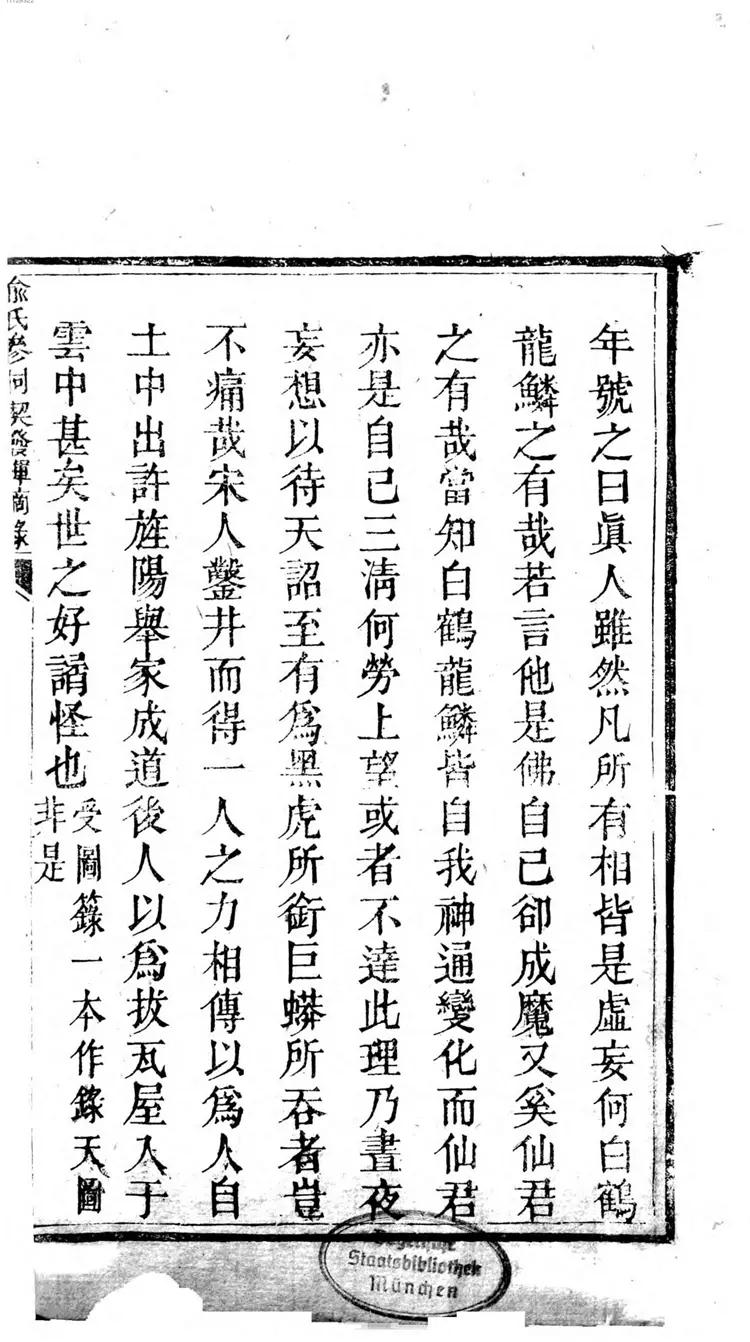 年號之曰眞人雖然凡所有相皆是虛妄何白鶴
龍鱗之有哉若言他是佛自己卻成魔又奚仙君
之有哉當知白鶴龍鱗皆自我神通變化而仙君
亦是自己三淸何勞上望或者不達此理乃晝夜
妄想以待天詔至有爲黑虎所銜巨蟒所吞者豈
不痛哉宋人鑿井而得一人之力相傳以爲人自
土中出許旌陽舉家成道後人以爲拔瓦屋入于
雲中甚矣世之好譎怪也
受圖籙一本作錄天圖
非是
俞氏參同契發揮摘錄
Staatsbibliothek
München